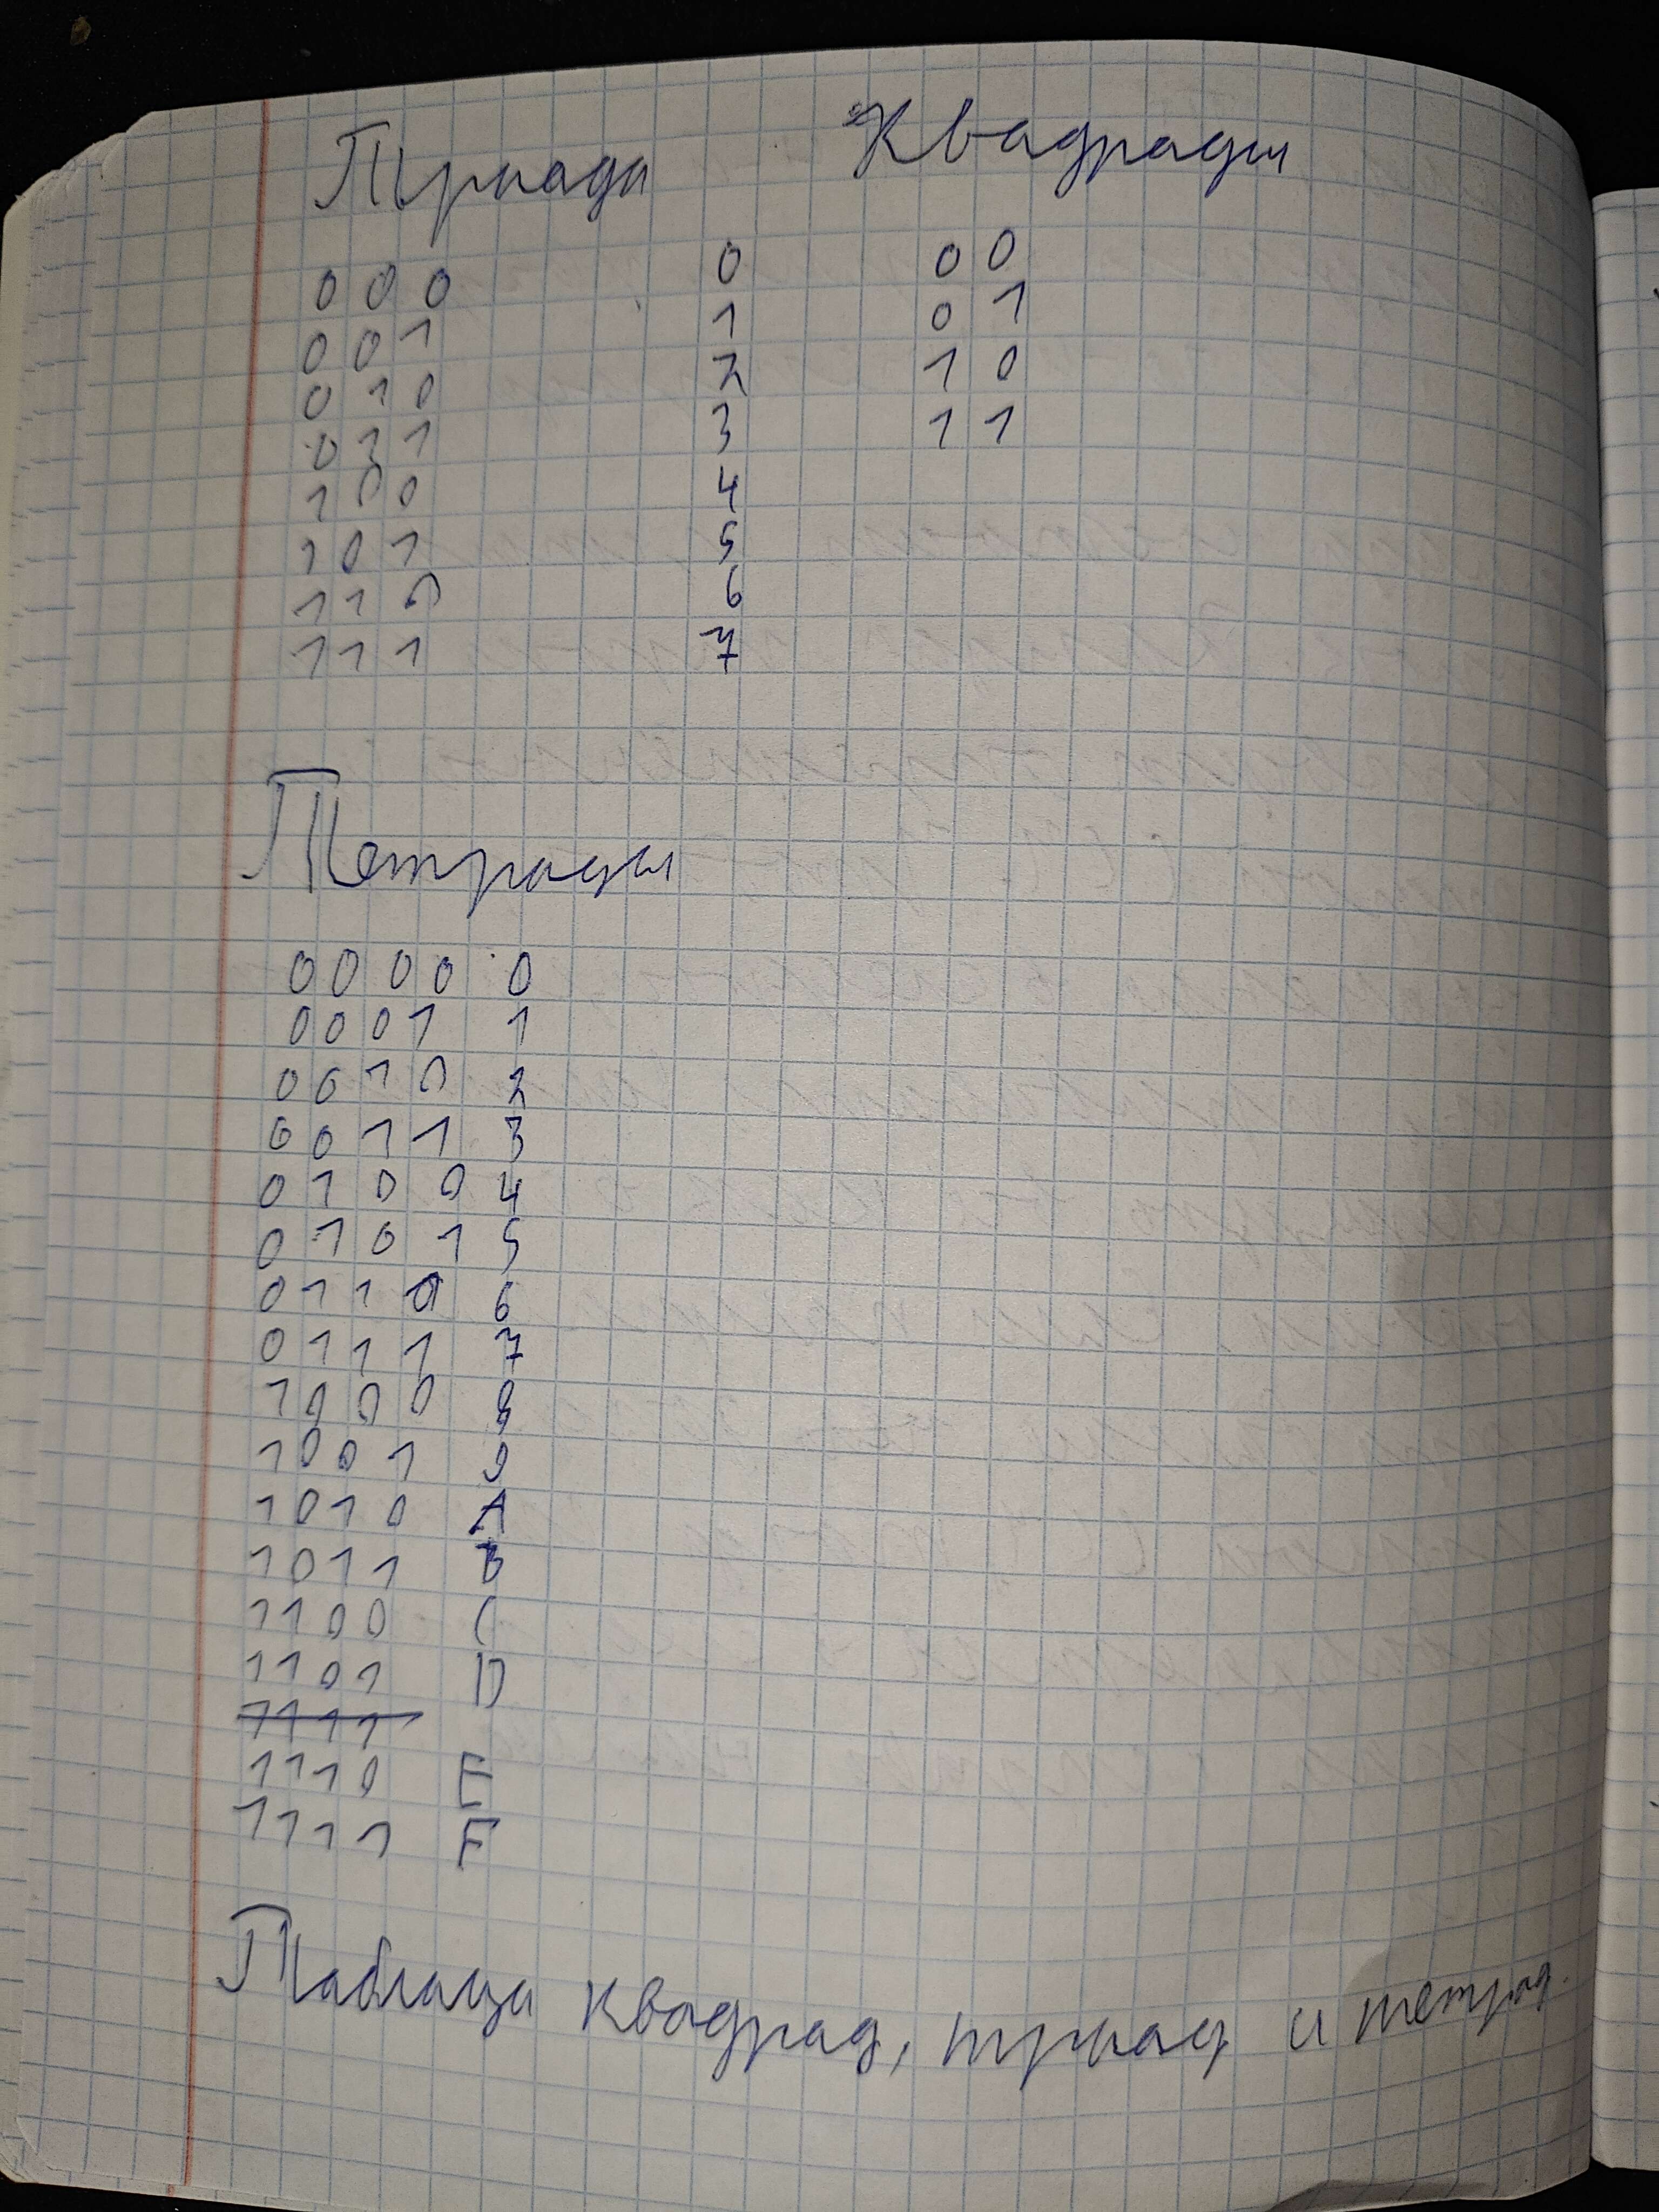 Триада Квадрады
000 0 00
001 1 01
010 2 10
011 3 11
100 4
101 5
110 6
111 7
Тетрады
0000 0
0001 1
0010 2
0011 3
0100 4
0101 5
0110 6
0111 7
1000 8
1001 9
1010 A
1011 B
1100 C
1101 D
1111
1110 E
1111 F
Таблица квадрад, триад и тетрад.